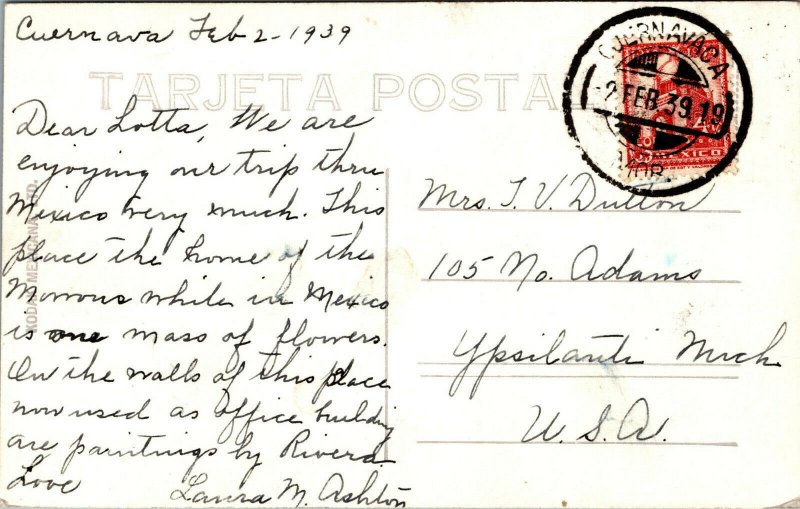 Cuernava Feb 2-1939
TARJETA POSTA
Dear Lotta, We are
enjoying our trip thru
Mexico very much. This
place the home of the
Morrous while in Mexico
is one mass of flowers.
On the walls of this place
now used as office building
are paintings by Rivera
Love
Laura M. Ashton
CUERNAVACA
-2 FEB 39 19
MOR.
MEXICO
Mrs. T. V. Dutton
105 No. Adams
Ypsilanti Mich
U. S. A.
KODAK MEXICANA, LTD.